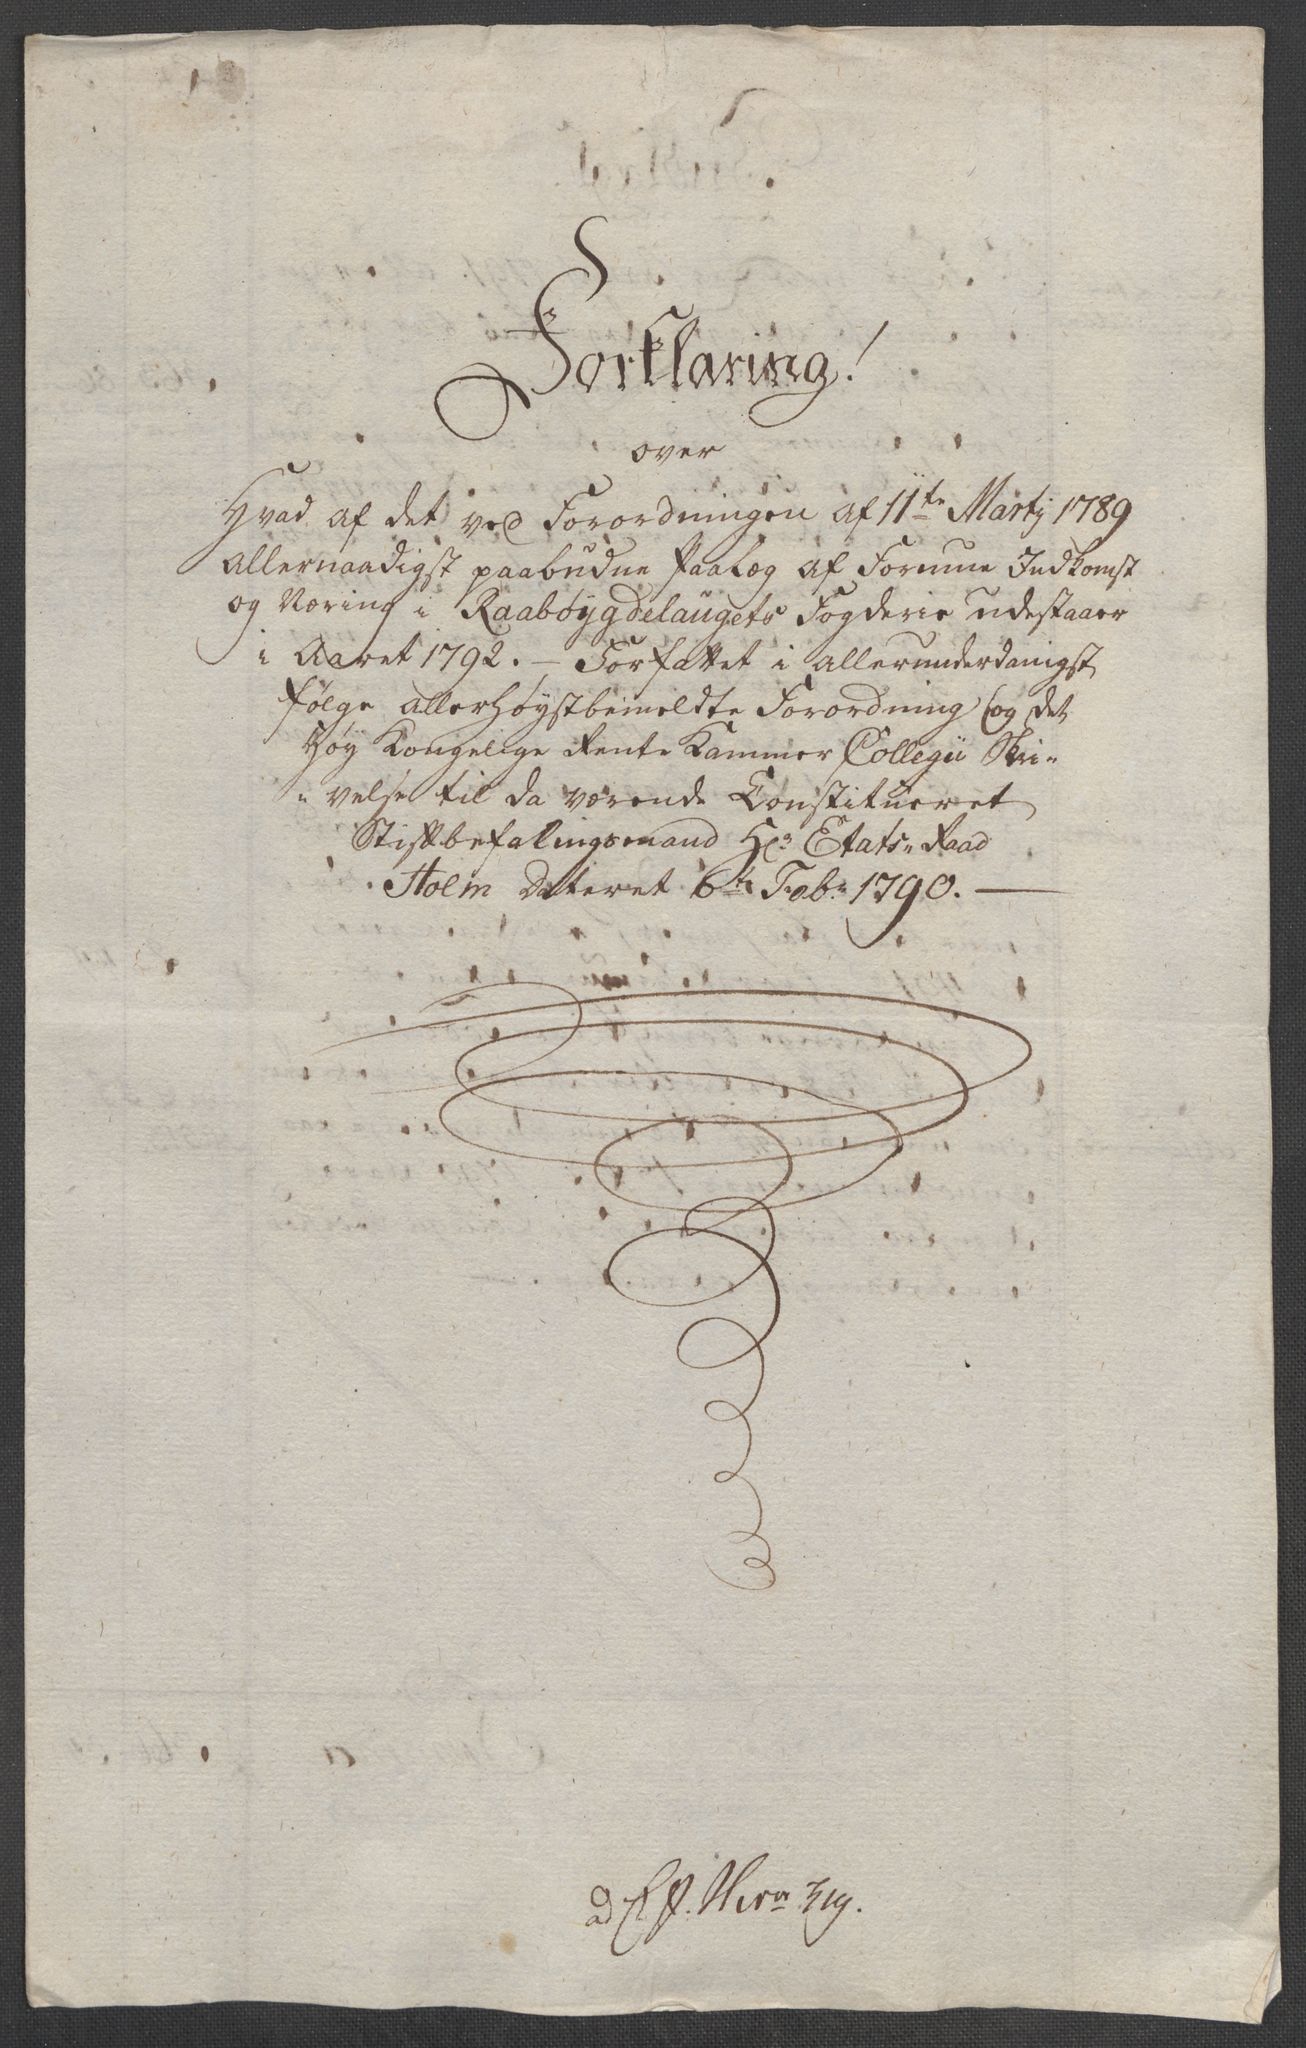 Forklaring!
over
Hvad af det ved Forordningen af 11te Martj 1789
allernaadigst paabudne Paalæg af Formue Indkomst
og Næring i Raabøygdelaugets Fogderie udestaaer
i Aaret 1792. – Forfattet i allerunderdanigst
følge allerhøystbemeldte Forordning (og det
Høy Kongelige Rente Kammer Collegii Skri-
velse til da værende Constitueret
Stiftbefalingsmand Hr. Etats- Raad
Holm dateret 6te Febr. 1790. –
ad